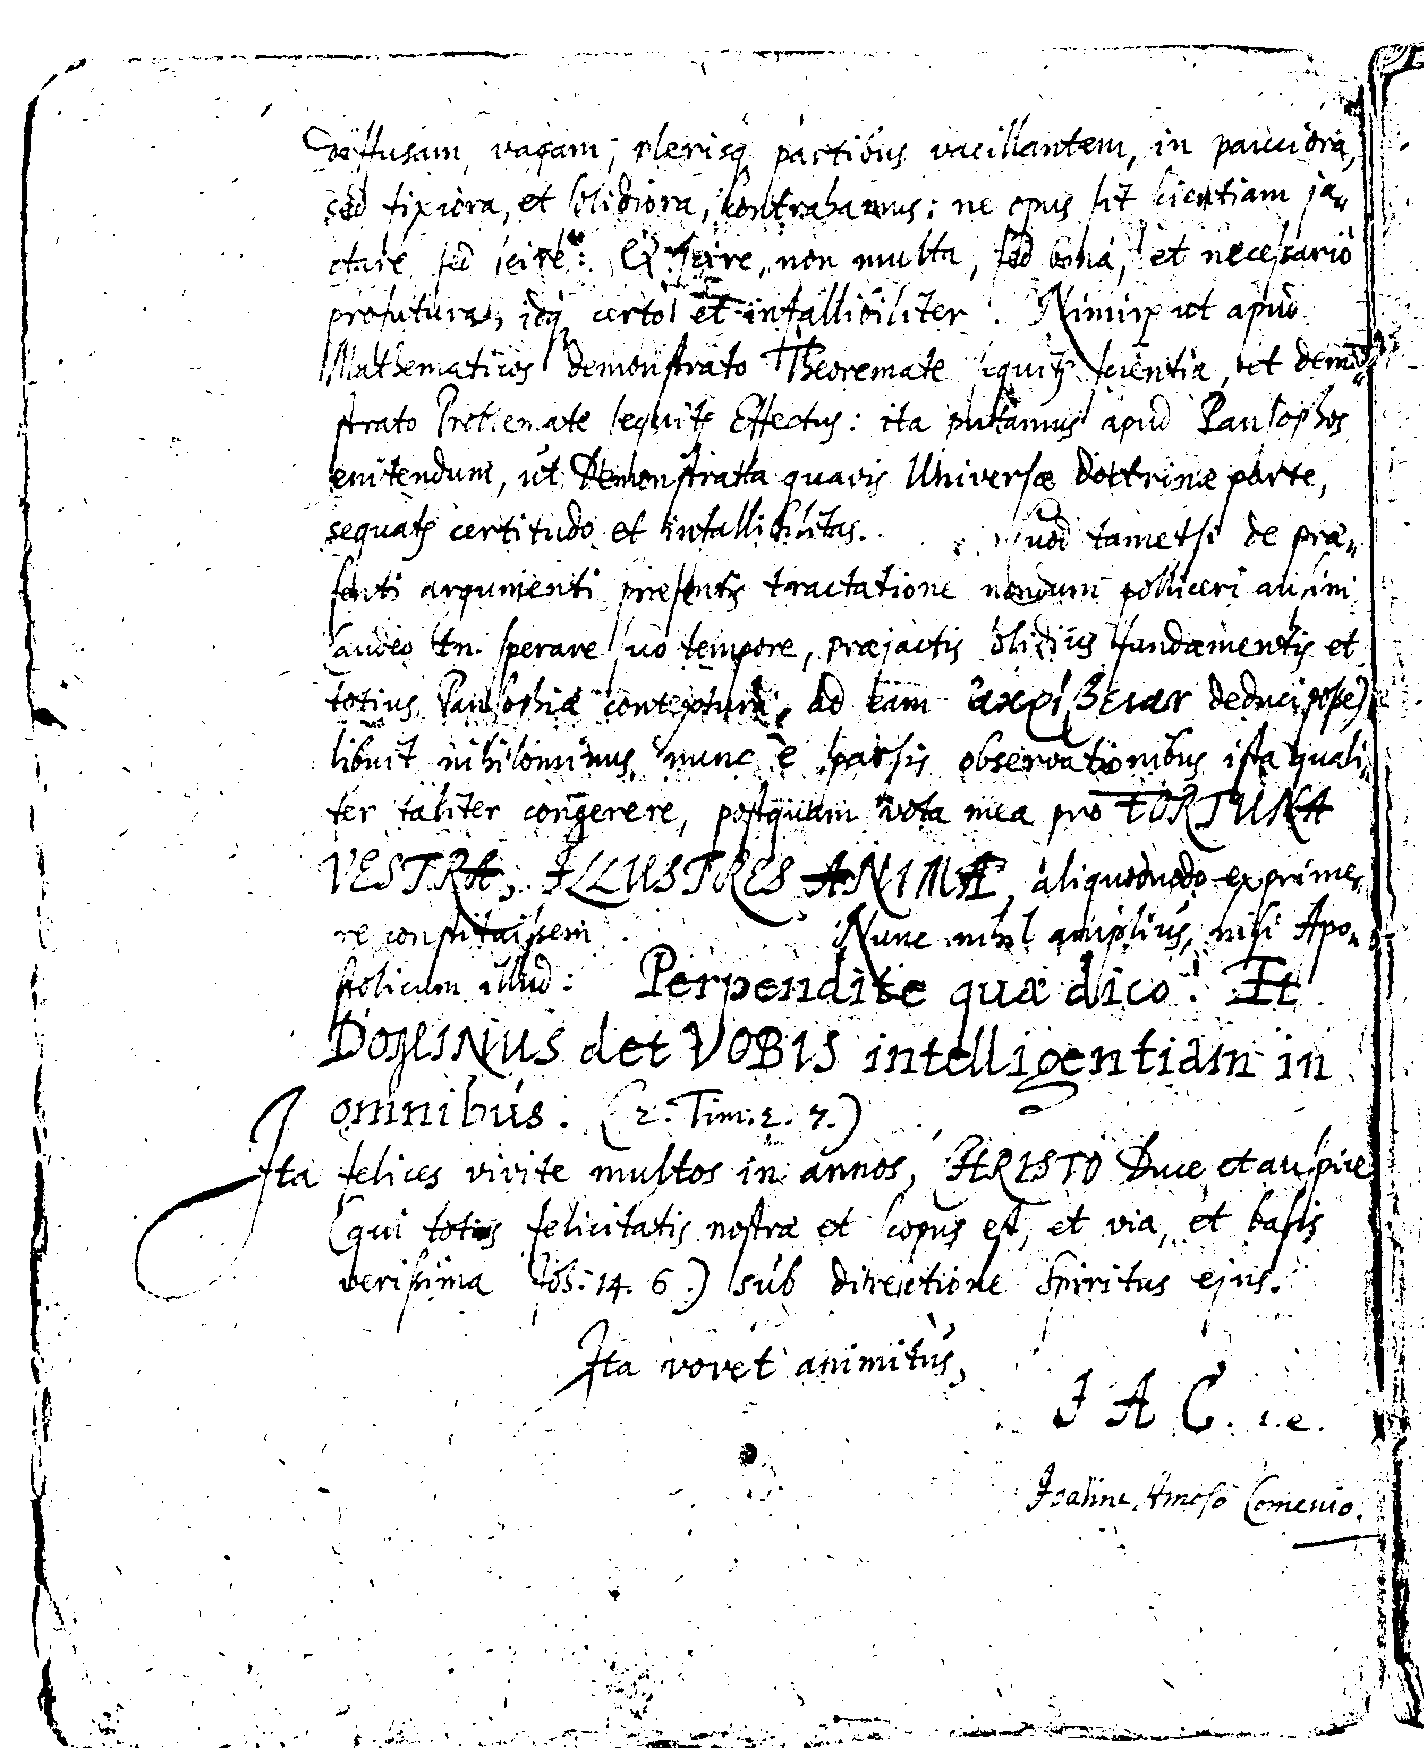 diffusam, vagam, plerisq; partibus vacillantem, in pauciora,
sed fixiora, et solidiora, contrahamus: ne opus sit scientiam ja„
ctare sed scire: Et scire, non multa, sed bona, et necessario
profutura, idq; certo et infallibiliter. Nimirꝝ ut apud
Mathematicos demonstrato Theoremate sequitꝭ scientia, et demõ„
strato Problemate sequitꝭ Effectus: ita putamus apud Pansophos
enitendum, ut Demonstrata quavis Universæ Doctrinæ parte,
sequatꝭ certitudo et infallibilitas. Quod tametsi de præ„
senti argumenti præsentis tractatione nondum polliceri ausim
(audeo tn. sperare suo tempore, præjactis solidius fundamentis et
totius Pansophiæ contextura, ad eam ἀκρίβειαν deduci posse)
libuit nihilominus nunc è sparsis observationibus ista quali„
ter taliter congerere, postquam vota mea pro FORTUNA
VESTRA, ILLUSTRES ANIMÆ, aliquomodo exprime„
re constituissem. Nunc nihil amplius, nisi Apo„
stolicum illud: Perpendite quæ dico! Et
DOMINUS det VOBIS intelligentiam in
omnibus. (2. Tim. 2. 7.)
Ita felices vivite multos in annos, CHRISTO Duce et auspice
(qui totius felicitatis nostræ et scopus est, et via, et basis
verissima Joh. 14. 6.) sub directione Spiritus ejus.
Ita vovet animitus,
J A C. i.e.
Joanne Amoso Comenio.